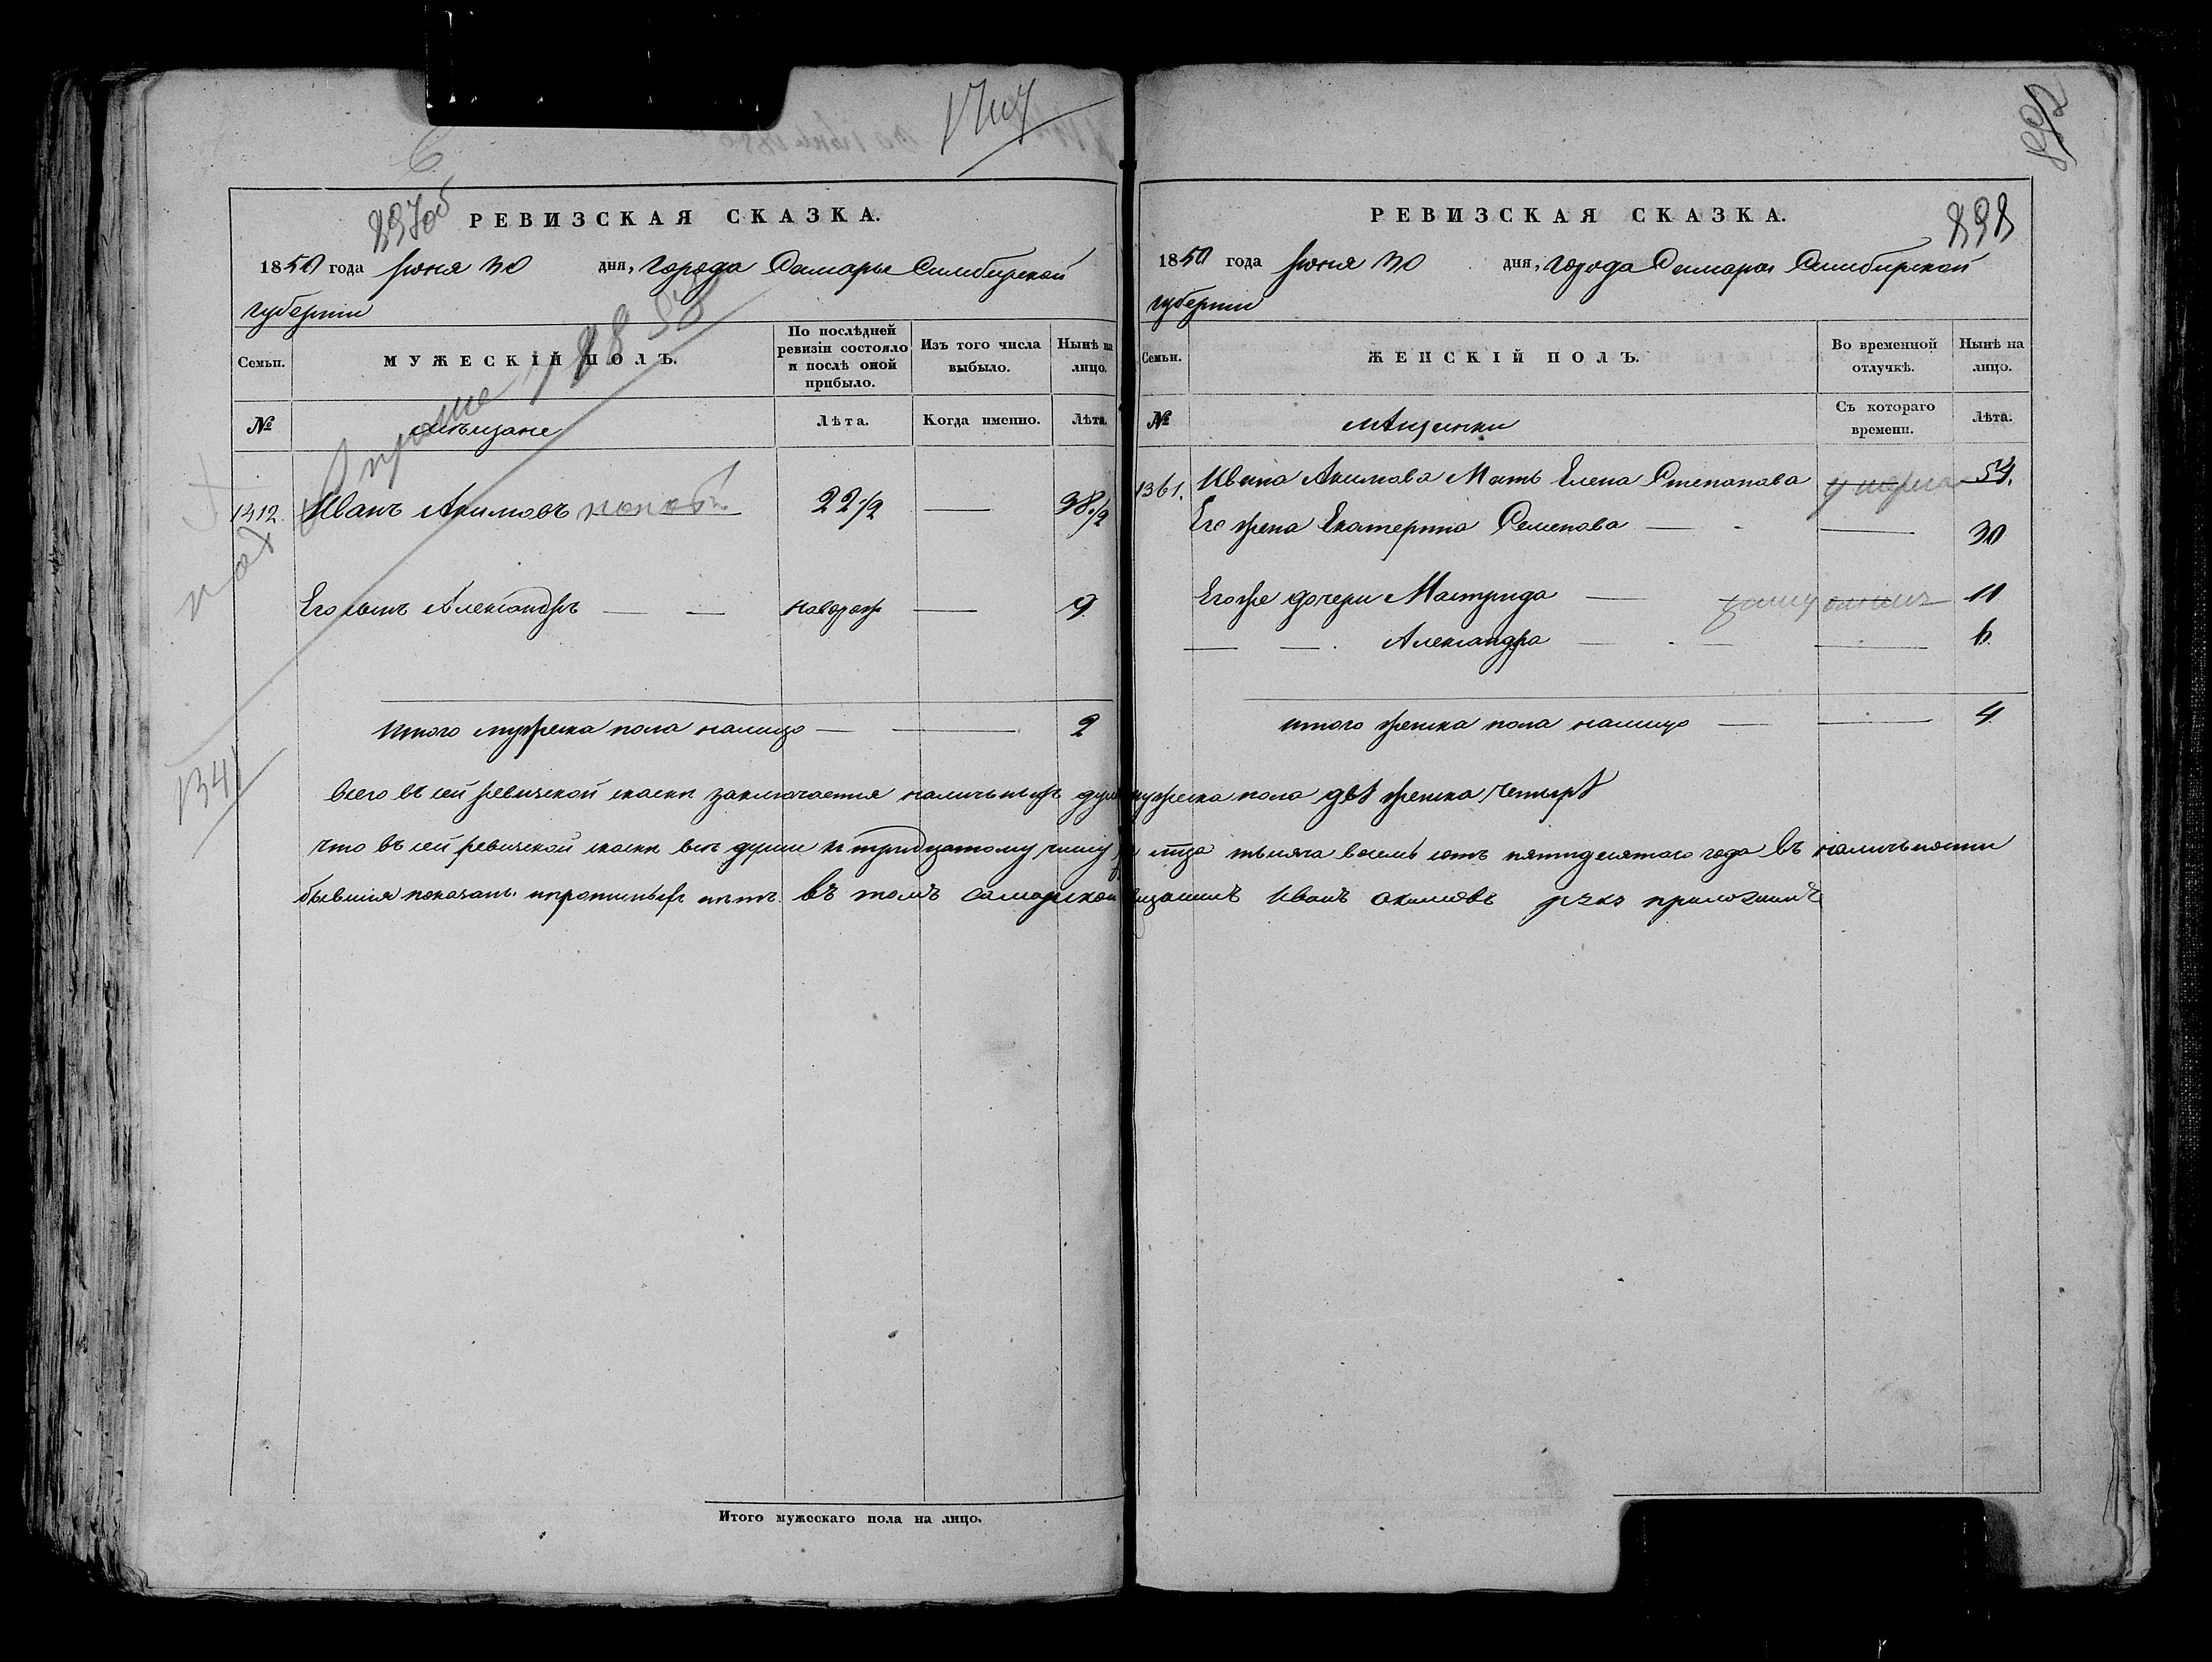 897об
РЕВИЗСКАЯ СКАЗКА.
1850 года Іюня 30 дня, Города Самары Симбирской
губерніи
Семьи.
МУЖЕСКІЙ ПОЛЪ.
По послѣдней
ревизіи состояло
и послѣ оной
прибыло.
Изъ того числа
выбыло.
Нынѣ на
лицо.
№
мѣщане
Лѣта.
Когда именно.
Лѣта.
1412. Иванъ Акимовъ Поповъ 22 1/2 — 38 1/2
Его сынъ Александръ — — новорож — 9
Итого мужеска пола налицо — — 2
1341
Итого мужескаго пола на лицо.
898
РЕВИЗСКАЯ СКАЗКА.
1850 года Іюня 30 дня, Города Самары Симбирской
губерніи
Семьи.
ЖЕНСКІЙ ПОЛЪ.
Во временной
отлучкѣ.
Нынѣ на
лицо.
№
мѣщанки
Съ котораго
времени.
Лѣта.
1361. Ивана Акимова Мать Елена Степанова умерла 54.
Его жена Екатерина Семенова — — 30
Его же дочери Мастрида — 11
— — Александра — — — 6.
итого женска пола налицо — — 4
Всего въ сей ревизской сказки заключается наличныхъ душъ мужеска пола двѣ женска четырѣ
Что въ сей ревизской сказки всѣ души к тридцатому числу мца тысяча восемь сотъ пятидесятого года въ наличности
бывшия показаны и прописныхъ нѣтъ. въ томъ самарской мещанинъ Иванъ Акимовъ руку приложилъ